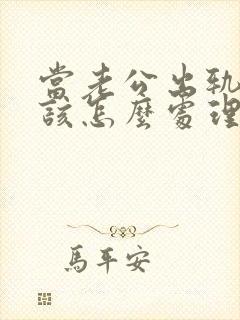 當老公出軌
該怎麼處理
馬平安